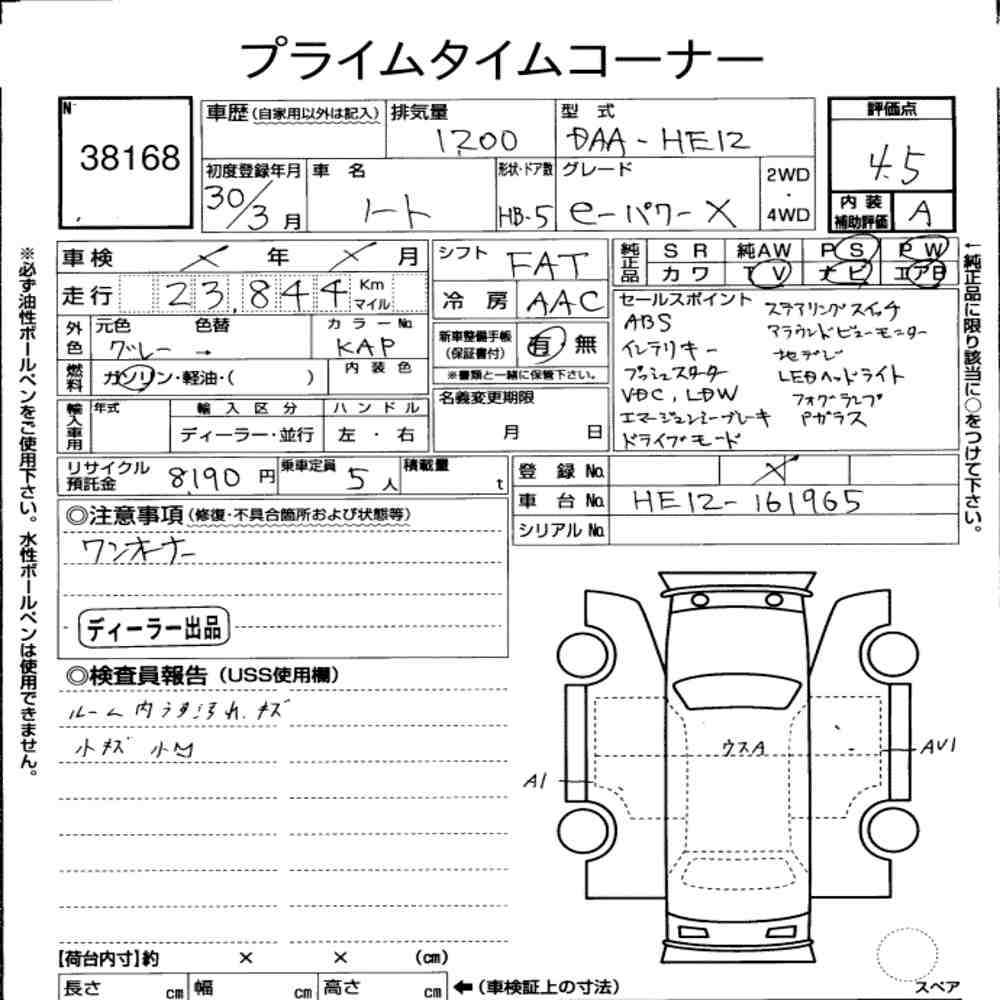 プライムタイムコーナー
No.
38168
車歴(自家用以外は記入) 排気量 1200 型式 DAA-HE12
初度登録年月 30/3月 車名 ノート 形状・ドア数 HB-5 グレード e-パワーX 2WD・4WD
評価点 4.5
内装補助評価 A
※必ず油性ボールペンをご使用下さい。水性ボールペンは使用できません。
←純正品に限り該当に○をつけて下さい。
車検 × 年 × 月
走行 23,844 Km マイル
外色 元色 グレー → 色替 カラーNo. KAP
燃料 ガソリン・軽油・( ) 内装色
輸入車用 年式 輸入区分 ディーラー・並行 ハンドル 左・右
シフト FAT
冷房 AAC
新車整備手帳(保証書付) 有・無
※書類と一緒に保管下さい。
名義変更期限 月 日
純正品 SR 純AW PS PW
カワ TV ナビ エアB
セールスポイント
ABS
インテリキー
プッシュスターター
VDC, LDW
エマージェンシーブレキ
ドライブモード
ステアリングスイッチ
アラウンドビューモニター
地デジ
LEDヘッドライト
フォグランプ
Pガラス
リサイクル預託金 8,190 円 乗車定員 5 人 積載量 t
登録No. ×
車台No. HE12-161965
シリアルNo.
◎注意事項(修復・不具合箇所および状態等)
ワンオーナー
ディーラー出品
◎検査員報告(USS使用欄)
ルーム内うす汚れ.キズ
小キズ 小凹
ウスA
A1
AU1
【荷台内寸】約 × × (cm)
長さ cm 幅 cm 高さ cm ←(車検証上の寸法)
スペア